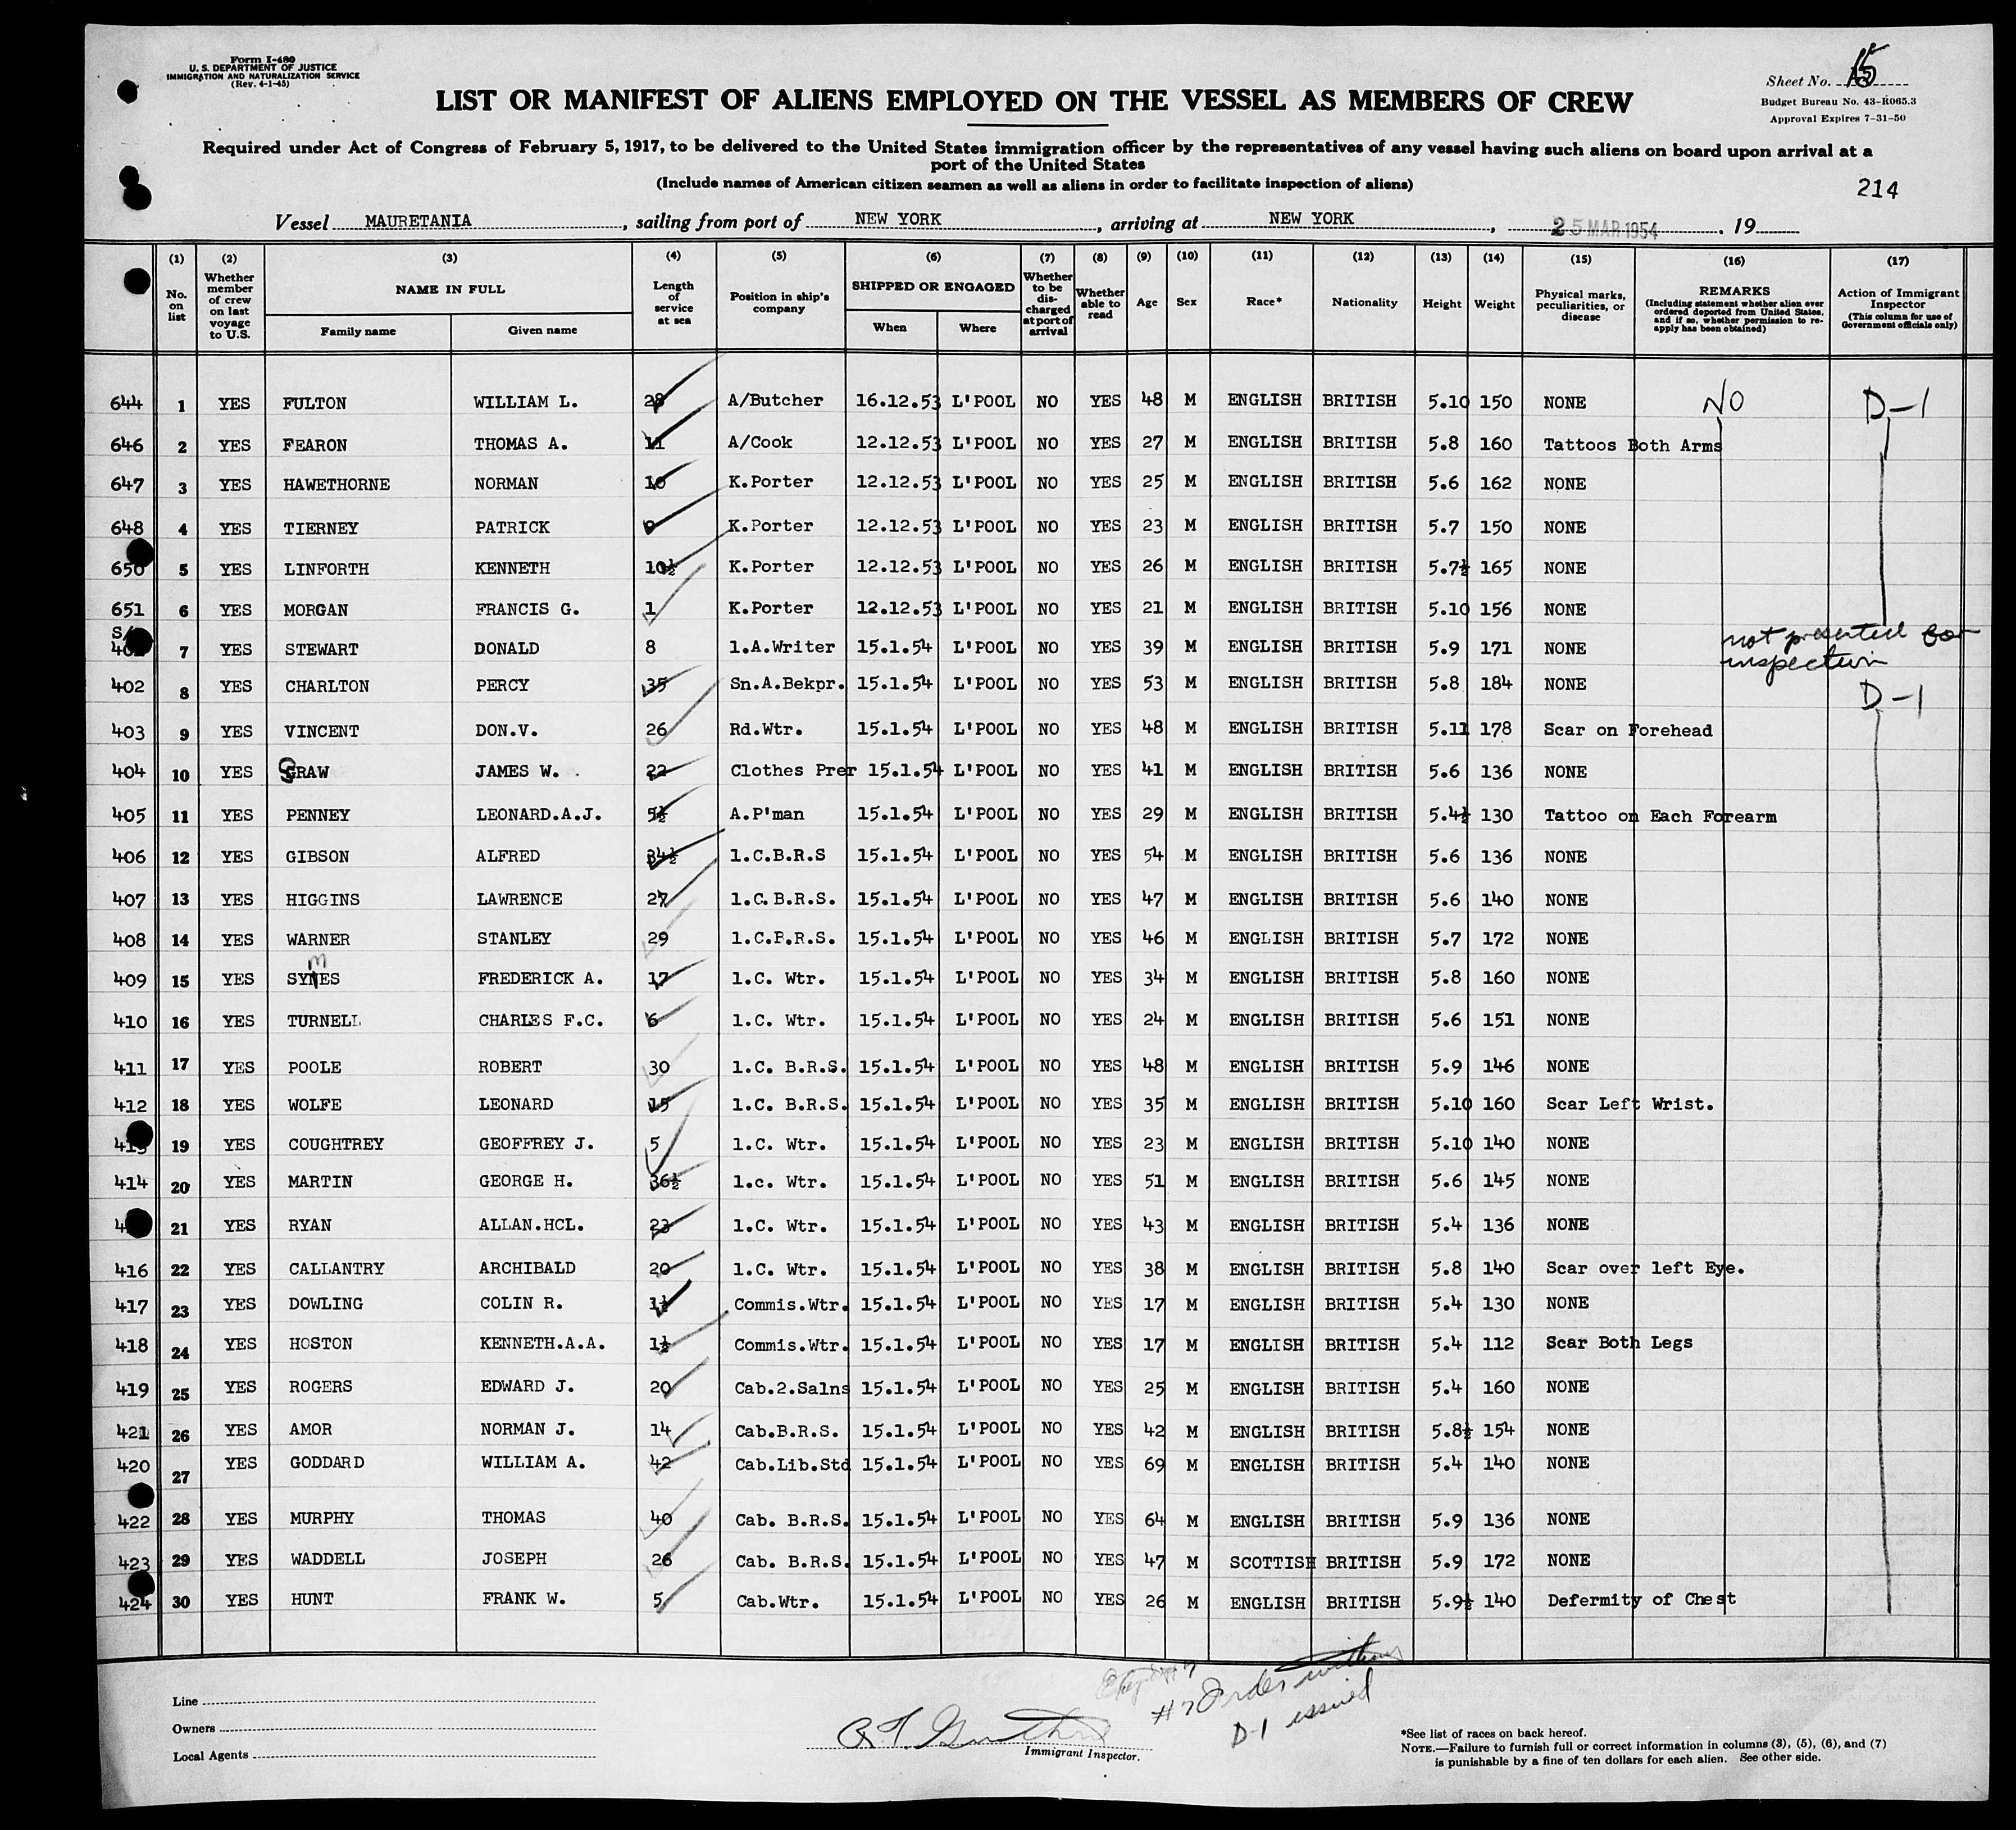 Form I-480
U. S. DEPARTMENT OF JUSTICE
IMMIGRATION AND NATURALIZATION SERVICE
(Rev. 4-1-45)
Sheet No. 15
Budget Bureau No. 43-R065.3
Approval Expires 7-31-50
LIST OR MANIFEST OF ALIENS EMPLOYED ON THE VESSEL AS MEMBERS OF CREW
Required under Act of Congress of February 5, 1917, to be delivered to the United States immigration officer by the representatives of any vessel having such aliens on board upon arrival at a
port of the United States
(Include names of American citizen seamen as well as aliens in order to facilitate inspection of aliens)
214
Vessel MAURETANIA, sailing from port of NEW YORK, arriving at NEW YORK, 25 MAR 1954, 19
(1) No. on list (2) Whether member of crew on last voyage to U.S. (3) NAME IN FULL Family name Given name (4) Length of service at sea (5) Position in ship's company (6) SHIPPED OR ENGAGED When Where (7) Whether to be discharged at port of arrival (8) Whether able to read (9) Age (10) Sex (11) Race* (12) Nationality (13) Height (14) Weight (15) Physical marks, peculiarities, or disease (16) REMARKS (Including statement whether alien ever ordered deported from United States, and if so, whether permission to reapply has been obtained) (17) Action of Immigrant Inspector (This column for use of Government officials only)
644 1 YES FULTON WILLIAM L. 28 A/Butcher 16.12.53 L'POOL NO YES 48 M ENGLISH BRITISH 5.10 150 NONE NO D-1
646 2 YES FEARON THOMAS A. 11 A/Cook 12.12.53 L'POOL NO YES 27 M ENGLISH BRITISH 5.8 160 Tattoos Both Arms
647 3 YES HAWETHORNE NORMAN 10 K.Porter 12.12.53 L'POOL NO YES 25 M ENGLISH BRITISH 5.6 162 NONE
648 4 YES TIERNEY PATRICK 9 K.Porter 12.12.53 L'POOL NO YES 23 M ENGLISH BRITISH 5.7 150 NONE
650 5 YES LINFORTH KENNETH 10½ K.Porter 12.12.53 L'POOL NO YES 26 M ENGLISH BRITISH 5.7½ 165 NONE
651 6 YES MORGAN FRANCIS G. 1 K.Porter 12.12.53 L'POOL NO YES 21 M ENGLISH BRITISH 5.10 156 NONE
7 YES STEWART DONALD 8 1.A.Writer 15.1.54 L'POOL NO YES 39 M ENGLISH BRITISH 5.9 171 NONE not presented for inspection
402 8 YES CHARLTON PERCY 35 Sn.A.Bekpr. 15.1.54 L'POOL NO YES 53 M ENGLISH BRITISH 5.8 184 NONE D-1
403 9 YES VINCENT DON.V. 26 Rd.Wtr. 15.1.54 L'POOL NO YES 48 M ENGLISH BRITISH 5.11 178 Scar on Forehead
404 10 YES GRAW JAMES W. 22 Clothes Prer 15.1.54 L'POOL NO YES 41 M ENGLISH BRITISH 5.6 136 NONE
405 11 YES PENNEY LEONARD.A.J. 5½ A.P'man 15.1.54 L'POOL NO YES 29 M ENGLISH BRITISH 5.4½ 130 Tattoo on Each Forearm
406 12 YES GIBSON ALFRED 34½ 1.C.B.R.S 15.1.54 L'POOL NO YES 54 M ENGLISH BRITISH 5.6 136 NONE
407 13 YES HIGGINS LAWRENCE 27 1.C.B.R.S. 15.1.54 L'POOL NO YES 47 M ENGLISH BRITISH 5.6 140 NONE
408 14 YES WARNER STANLEY 29 1.C.B.R.S. 15.1.54 L'POOL NO YES 46 M ENGLISH BRITISH 5.7 172 NONE
409 15 YES SYMES FREDERICK A. 17 1.C. Wtr. 15.1.54 L'POOL NO YES 34 M ENGLISH BRITISH 5.8 160 NONE
410 16 YES TURNELL CHARLES F.C. 6 1.C. Wtr. 15.1.54 L'POOL NO YES 24 M ENGLISH BRITISH 5.6 151 NONE
411 17 YES POOLE ROBERT 30 1.C. B.R.S. 15.1.54 L'POOL NO YES 48 M ENGLISH BRITISH 5.9 146 NONE
412 18 YES WOLFE LEONARD 15 1.C. B.R.S. 15.1.54 L'POOL NO YES 35 M ENGLISH BRITISH 5.10 160 Scar Left Wrist.
413 19 YES COUGHTREY GEOFFREY J. 5 1.C. Wtr. 15.1.54 L'POOL NO YES 23 M ENGLISH BRITISH 5.10 140 NONE
414 20 YES MARTIN GEORGE H. 36½ 1.c. Wtr. 15.1.54 L'POOL NO YES 51 M ENGLISH BRITISH 5.6 145 NONE
21 YES RYAN ALLAN.HCL. 23 1.C. Wtr. 15.1.54 L'POOL NO YES 43 M ENGLISH BRITISH 5.4 136 NONE
416 22 YES CALLANTRY ARCHIBALD 20 1.C. Wtr. 15.1.54 L'POOL NO YES 38 M ENGLISH BRITISH 5.8 140 Scar over left Eye.
417 23 YES DOWLING COLIN R. 1½ Commis.Wtr. 15.1.54 L'POOL NO YES 17 M ENGLISH BRITISH 5.4 130 NONE
418 24 YES HOSTON KENNETH.A.A. 1½ Commis.Wtr. 15.1.54 L'POOL NO YES 17 M ENGLISH BRITISH 5.4 112 Scar Both Legs
419 25 YES ROGERS EDWARD J. 20 Cab.2.Salns 15.1.54 L'POOL NO YES 25 M ENGLISH BRITISH 5.4 160 NONE
421 26 YES AMOR NORMAN J. 14 Cab.B.R.S. 15.1.54 L'POOL NO YES 42 M ENGLISH BRITISH 5.8½ 154 NONE
420 27 YES GODDARD WILLIAM A. 42 Cab.Lib.Std 15.1.54 L'POOL NO YES 69 M ENGLISH BRITISH 5.4 140 NONE
422 28 YES MURPHY THOMAS 40 Cab. B.R.S. 15.1.54 L'POOL NO YES 64 M ENGLISH BRITISH 5.9 136 NONE
423 29 YES WADDELL JOSEPH 26 Cab. B.R.S. 15.1.54 L'POOL NO YES 47 M SCOTTISH BRITISH 5.9 172 NONE
424 30 YES HUNT FRANK W. 5 Cab.Wtr. 15.1.54 L'POOL NO YES 26 M ENGLISH BRITISH 5.9½ 140 Defermity of Chest
#7
D-1 issued
Line
Owners
Local Agents
Immigrant Inspector.
*See list of races on back hereof.
NOTE.—Failure to furnish full or correct information in columns (3), (5), (6), and (7)
is punishable by a fine of ten dollars for each alien. See other side.